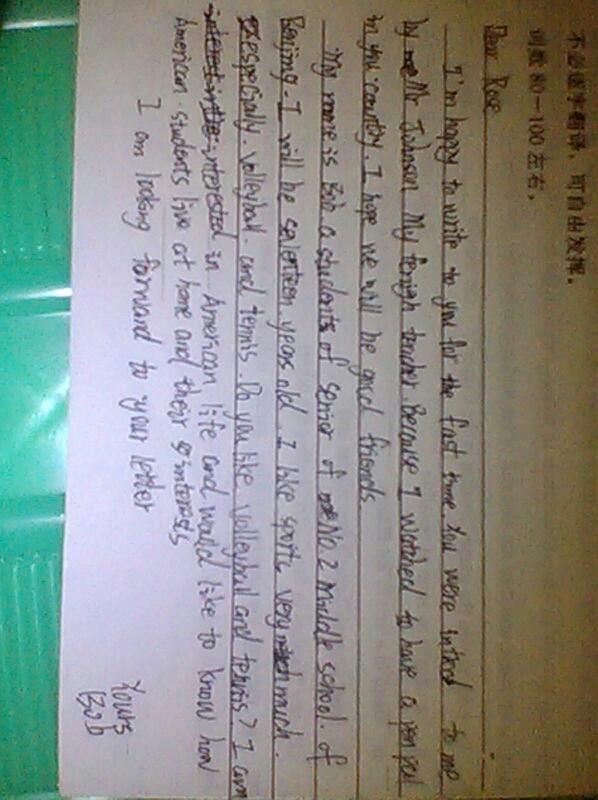 不必逐字翻译，可自由发挥。
词数80—100左右。
Dear Rose
I'm happy to write to you for the first time You were introd to me
by Mr Johnson My foreigh teacher. Because I watched to have a pen pal
in you country. I hope we will be good friends.
My name is Bob a students of senior of No.2 Middle school. of
Beijing. I will be seventeen years old. I like sports very much.
especially. volleyball. and tennis. Do you like volleyball and tennis? I am
interested in American life and would like to know how
American. students live at home and their interests
I am looking forward to your letter
Yours
Bob